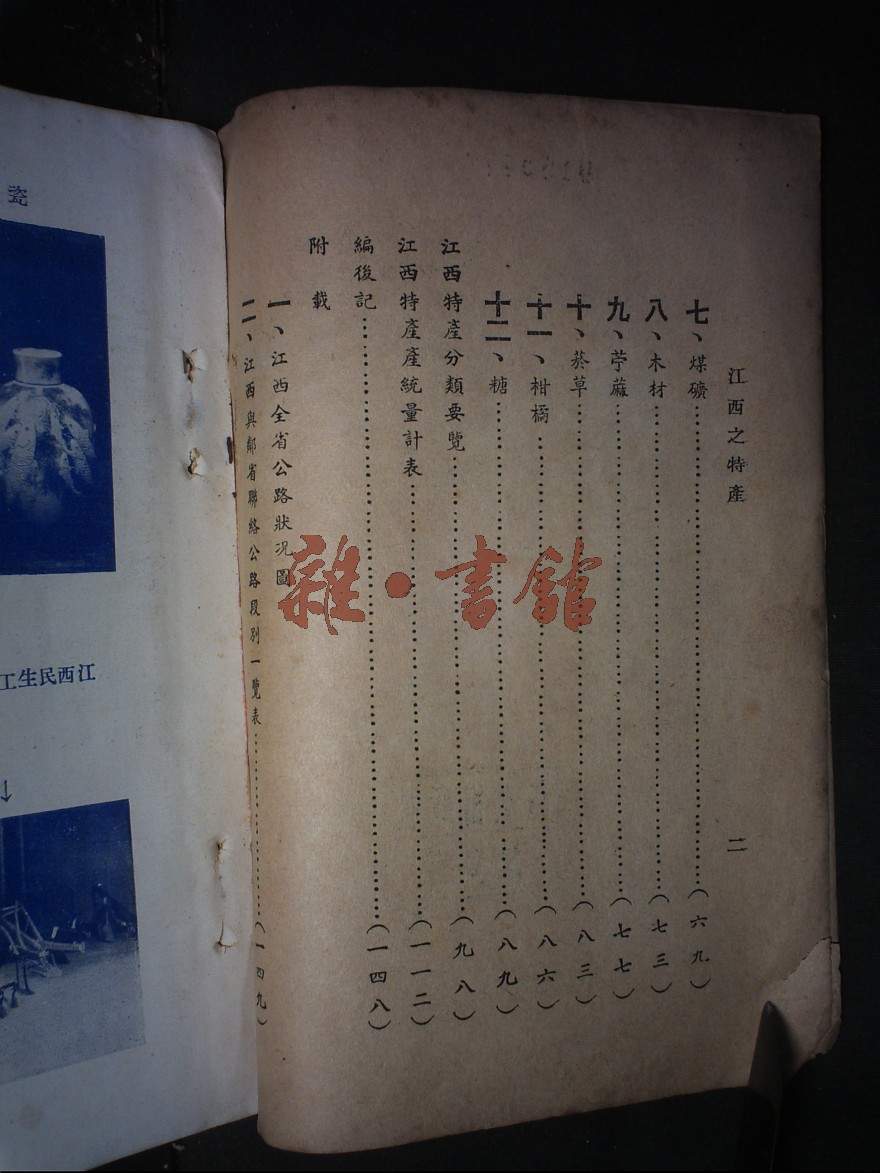 江西之特產
二
七、煤礦……(六九)
八、木材……(七三)
九、苧蔴……(七七)
十、菸草……(八三)
十一、柑橘……(八六)
十二、糖……(八九)
江西特產分類要覽……(九八)
江西特產產統量計表……(一一二)
編後記……(一四八)
附載
一、江西全省公路狀况圖
二、江西與鄰省聯絡公路段別一覽表……(一四九)
瓷
江西民生工
↓
雜·書館